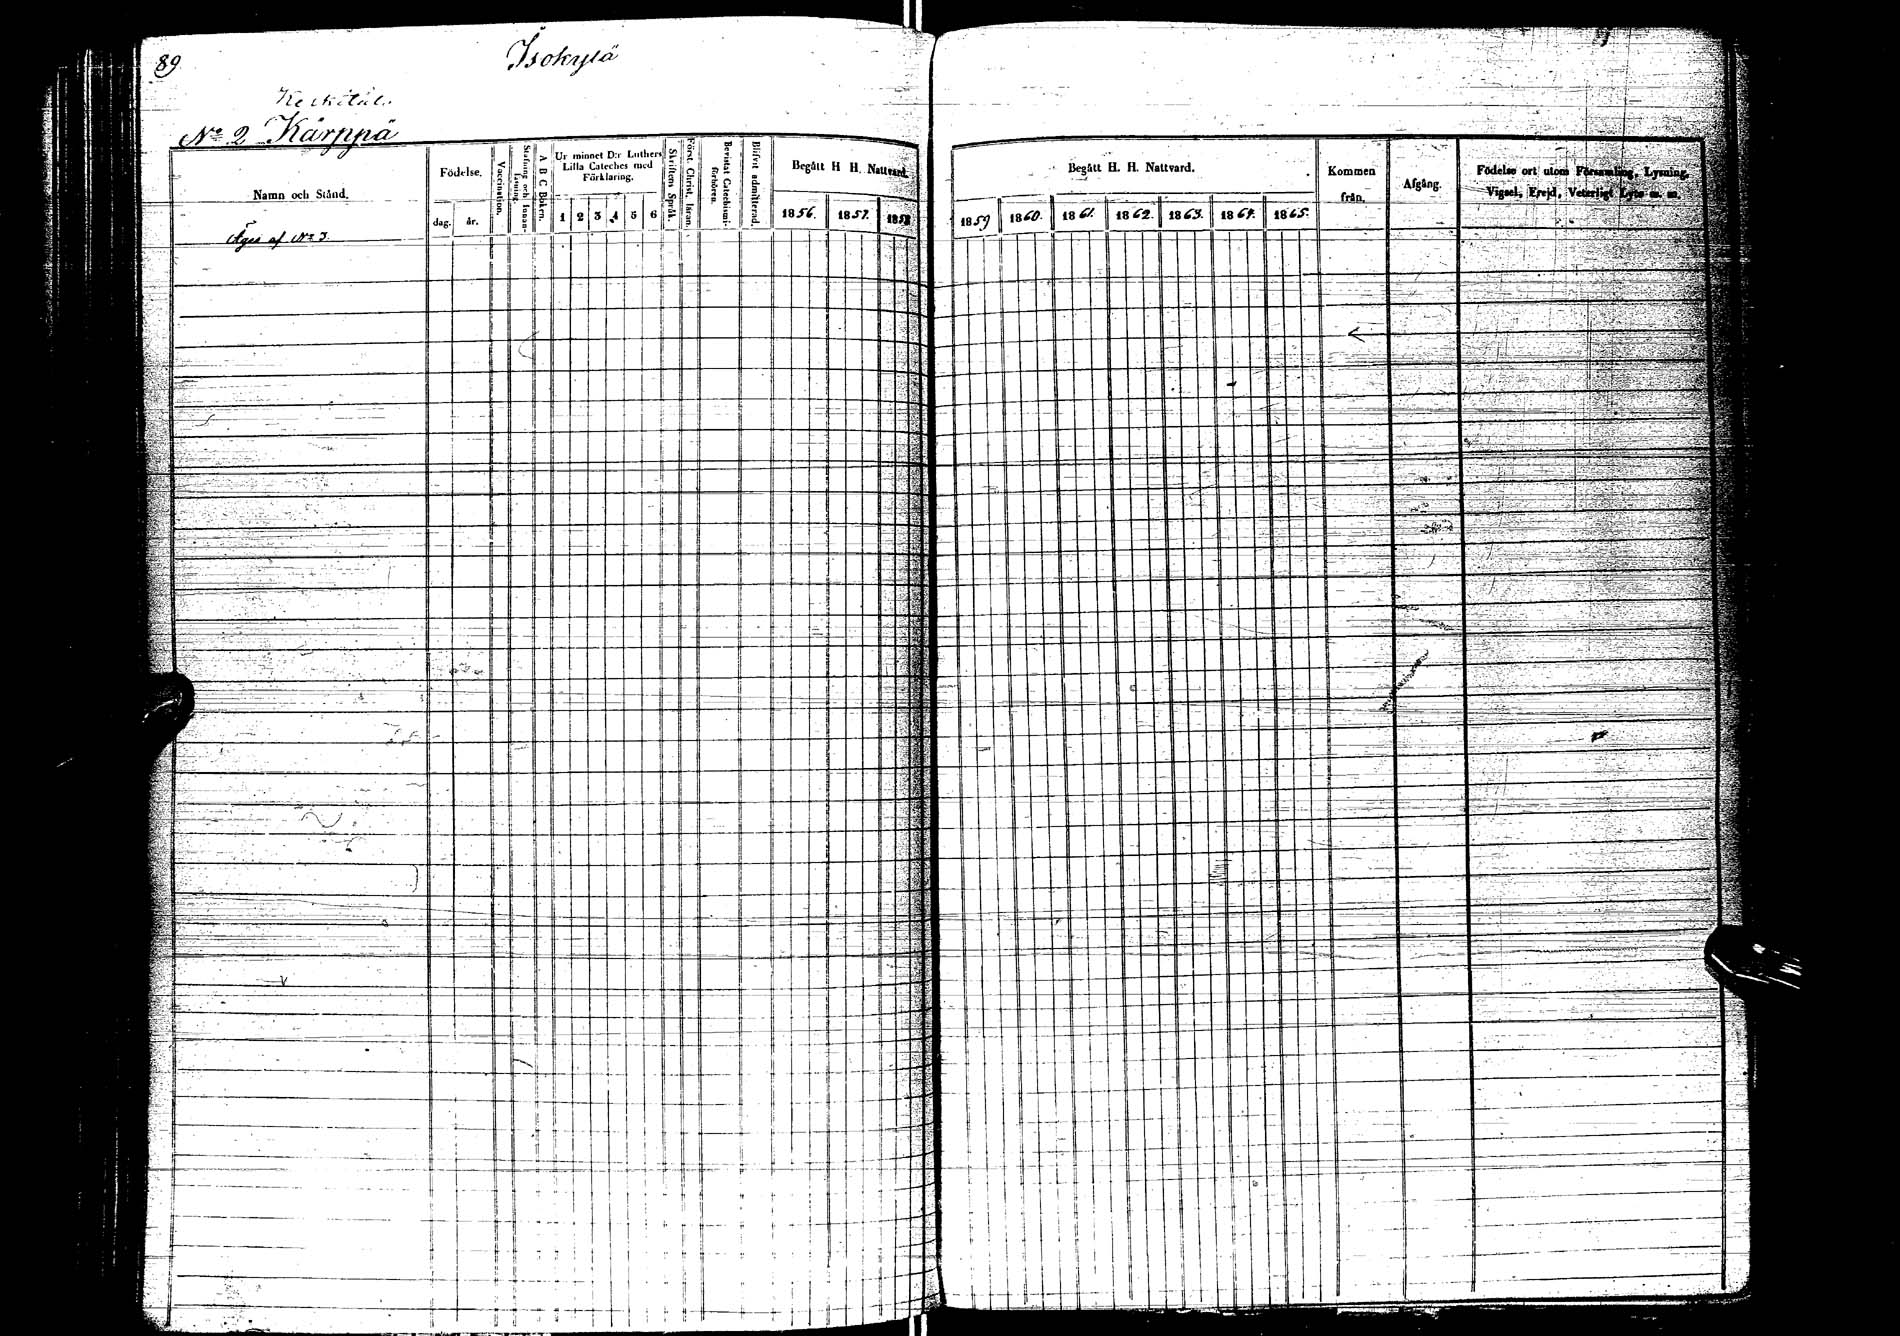 89
Isokylä
Keskitalo
No 2 Kärppä
Namn och Stånd.
Födelse.
dag.
år.
Vaccination.
Stafning och Innan-
läsning.
A B C Boken.
Ur minnet D:r Luthers
Lilla Cateches med
Förklaring.
1 2 3 4 5 6
Skriftens Språk.
Först. Christ. läran.
Bevistat Catechismi-
förhören.
Blifvit admitterad.
Begått H. H. Nattvard.
1856. 1857. 1858
Äges af No 3.
Begått H. H. Nattvard.
1859 1860. 1861. 1862. 1863. 1864. 1865.
Kommen
från.
Afgång.
Födelse ort utom Församling, Lysning,
Vigsel, Frejd, Veterligt Lyte m. m.